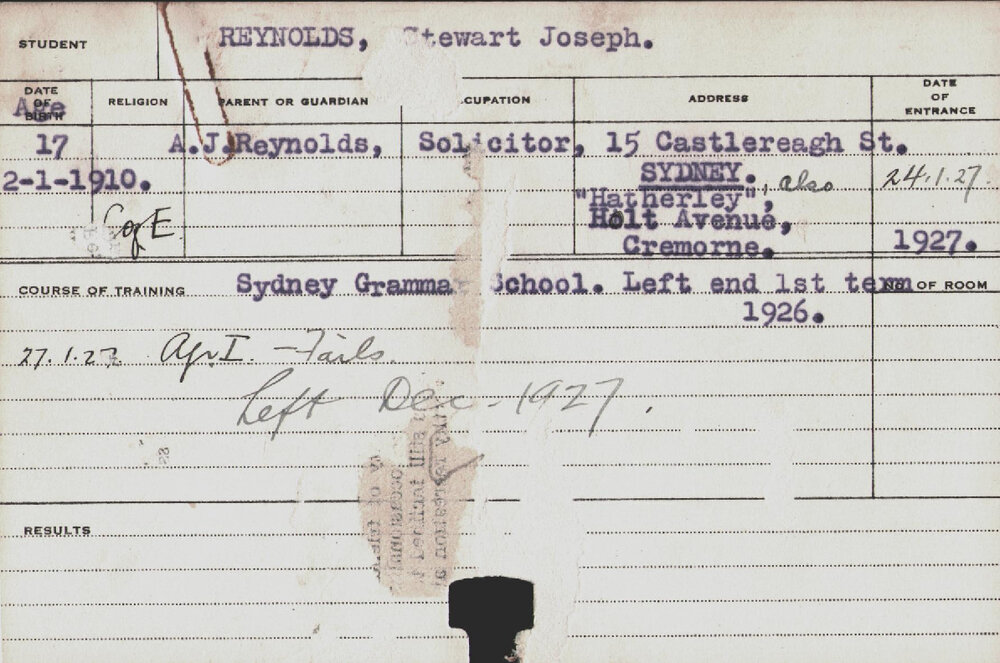 STUDENT REYNOLDS, Stewart Joseph.
DATE OF BIRTH Age RELIGION PARENT OR GUARDIAN CUPATION ADDRESS DATE OF ENTRANCE
17 A.J.Reynolds, Solicitor, 15 Castlereagh St.
2-1-1910. SYDNEY. also 24.1.27.
"Hatherley",
C of E Holt Avenue,
Cremorne. 1927.
COURSE OF TRAINING Sydney Grammar School. Left end 1st term NO. OF ROOM
1926.
27.1.27. Agr I. - Fails.
Left Dec - 1927.
RESULTS